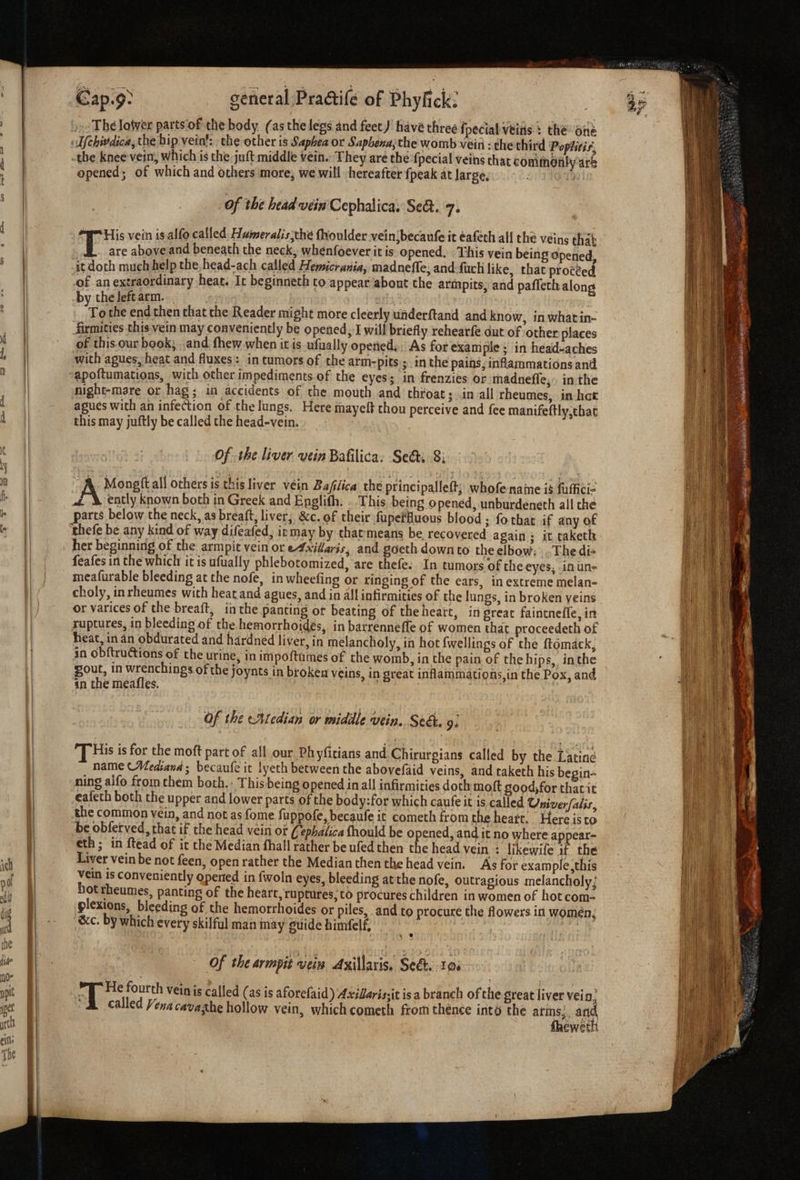 Cap.9. general Practiſe of Phyſick. 35
The lower parts of the body (as the legs and feet) have three ſpecial veins : the one
Iſchiadica, the hip vein: the other is Saphea or Saphena, the womb vein : the third Poplitis,
the knee vein, which is the juſt middle vein. They are the ſpecial veins that commonly are
opened; of which and others more, we will hereafter ſpeak at large.
Of the head vein Cephalica. Sect. 7.
THis vein is alſo called Humeralis, the ſhoulder vein, becauſe it eaſeth all the veins that
are above and beneath the neck, whenſoever it is opened. This vein being opened,
it doth much help the head-ach called Hemicrania, madneſſe, and ſuch like, that proceed
of an extraordinary heat. It beginneth to appear about the armpits, and paſſeth along
by the left arm.
To the end then that the Reader might more cleerly underſtand and know, in what in-
firmities this vein may conveniently be opened, I will briefly rehearſe out of other places
of this our book, and ſhew when it is uſually opened. As for example ; in head-aches
with agues, heat and fluxes : in tumors of the arm-pits ; in the pains, inflammations and
apoſtumations, with other impediments of the eyes; in frenzies or madneſſe, in the
night-mare or hag; in accidents of the mouth and throat; in all rheumes, in hot
agues with an infection of the lungs. Here mayeſt thou perceive and ſee manifeſtly, that
this may juſtly be called the head-vein.
Of the liver vein Baſilica. Sect. 8.
AMongſt all others is this liver vein Baſilica the principalleſt, whoſe name is ſuffici-
ently known both in Greek and Engliſh. This being opened, unburdeneth all the
parts below the neck, as breaſt, liver, &c. of their ſuperfluous blood ; ſo that if any of
theſe be any kind of way diſeaſed, it may by that means be recovered again ; it taketh
her beginning of the armpit vein or Axillaris, and goeth down to the elbow. The di-
ſeaſes in the which it is uſually phlebotomized, are theſe. In tumors of the eyes, in un-
meaſurable bleeding at the noſe, in wheeſing or ringing of the ears, in extreme melan-
choly, in rheumes with heat and agues, and in all infirmities of the lungs, in broken veins
or varices of the breaſt, in the panting or beating of the heart, in great faintneſſe, in
ruptures, in bleeding of the hemorrhoides, in barrenneſſe of women that proceedeth of
heat, in an obdurated and hardned liver, in melancholy, in hot ſwellings of the ſtomack,
in obſtructions of the urine, in impoſtumes of the womb, in the pain of the hips, in the
gout, in wrenchings of the joynts in broken veins, in great inflammations, in the Pox, and
in the meaſles.
Of the Median or middle vein. Sect. 9.
THis is for the moſt part of all our Phyſitians and Chirurgians called by the Latine
name Mediana; becauſe it lyeth between the aboveſaid veins, and taketh his begin-
ning alſo from them both. This being opened in all infirmities doth moſt good, for that it
eaſeth both the upper and lower parts of the body: for which cauſe it is called Univerſalis,
the common vein, and not as ſome ſuppoſe, becauſe it cometh from the heart. Here is to
be obſerved, that if the head vein or Cephalica ſhould be opened, and it no where appear-
eth ; in ſtead of it the Median ſhall rather be uſed then the head vein : likewiſe if the
Liver vein be not ſeen, open rather the Median then the head vein. As for example, this
vein is conveniently opened in ſwoln eyes, bleeding at the noſe, outragious melancholy,
hot rheumes, panting of the heart, ruptures, to procures children in women of hot com-
plexions, bleeding of the hemorrhoides or piles, and to procure the flowers in women,
&c. by which every skilful man may guide himſelf.
Of the armpit vein Axillaris. Sect. 10.
THe fourth vein is called (as is aforeſaid) Axillaris; it is a branch of the great liver vein,
called Vena cava, the hollow vein, which cometh from thence into the arms, and
ſheweth